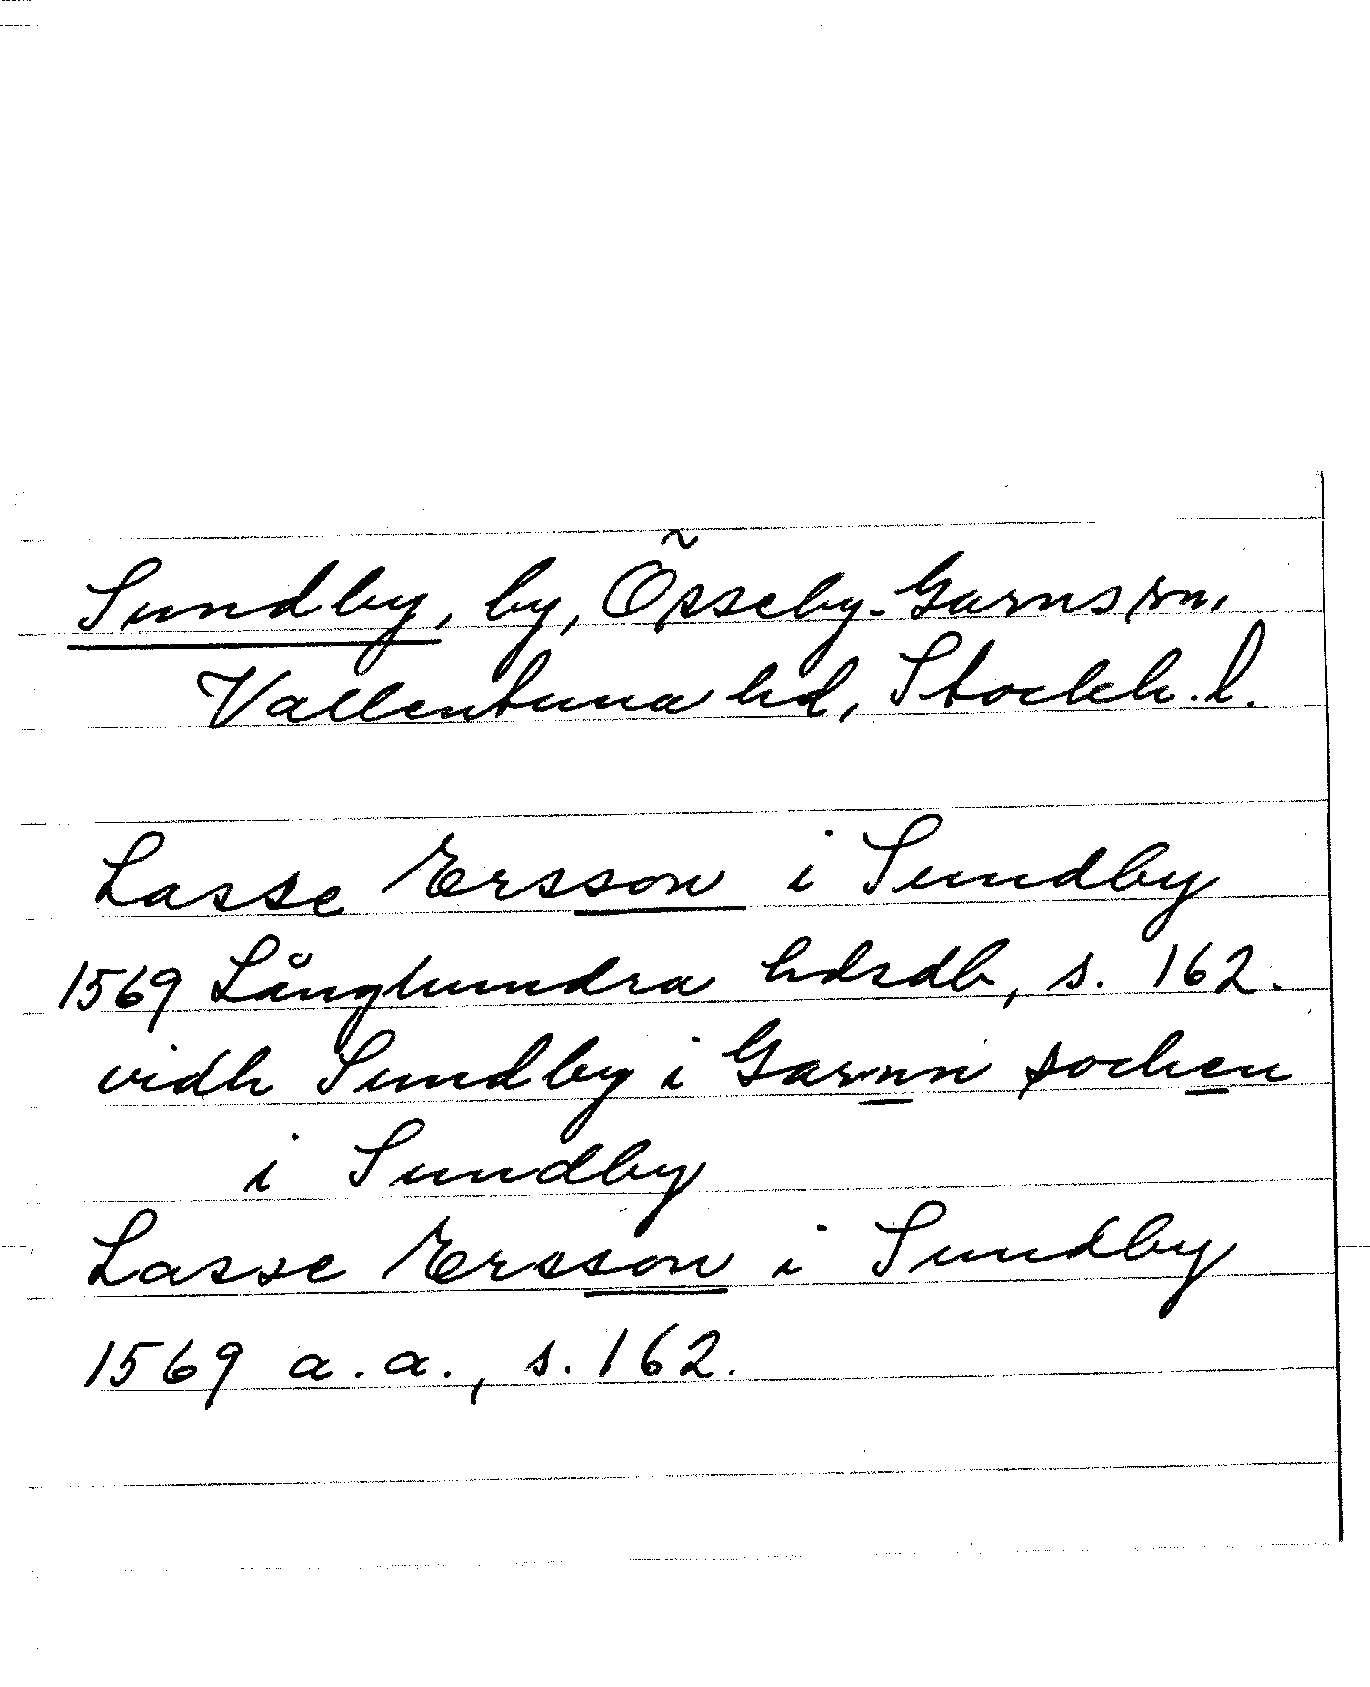 Sundby, by, Össeby-Garns sn,
Vallentuna hd, Stockh. l.
Lasse Ersson i Sundby
1569 Långhundra hdrdb, s. 162.
vidh Sundby i Garnn sochen
i Sundby
Lasse Ersson i Sundby
1569 a.a., s. 162.